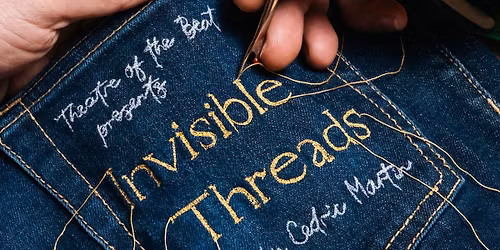 Theatre of the Beat
presents
Invisible
Threads
Cedric Martin